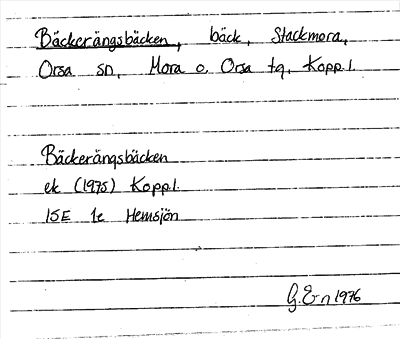 Bäckerängsbäcken, bäck, Stackmora,
Orsa sn, Mora o. Orsa tg, Kopp.l.
Bäckerängsbäcken
ek (1975) Kopp.l.
15E 1e Hemsjön
G. E-n 1976